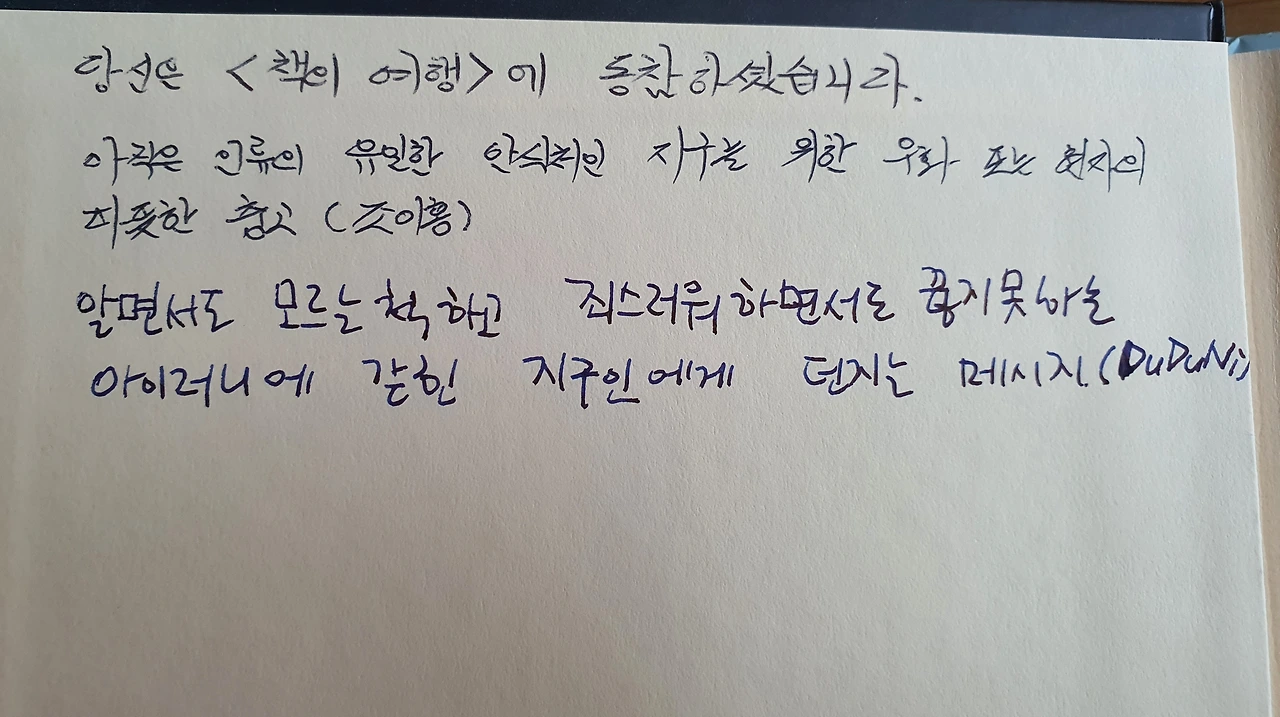 당신은 <책이 여행>에 동참하셨습니다.
아직은 인류의 유일한 안식처인 지구를 위한 우화 또는 현자의
따뜻한 충고 (조이홍)
알면서도 모르는 척 하고 죄스러워 하면서도 끊지 못하는
아이러니에 갇힌 지구인에게 던지는 메시지 (DuDuNi)